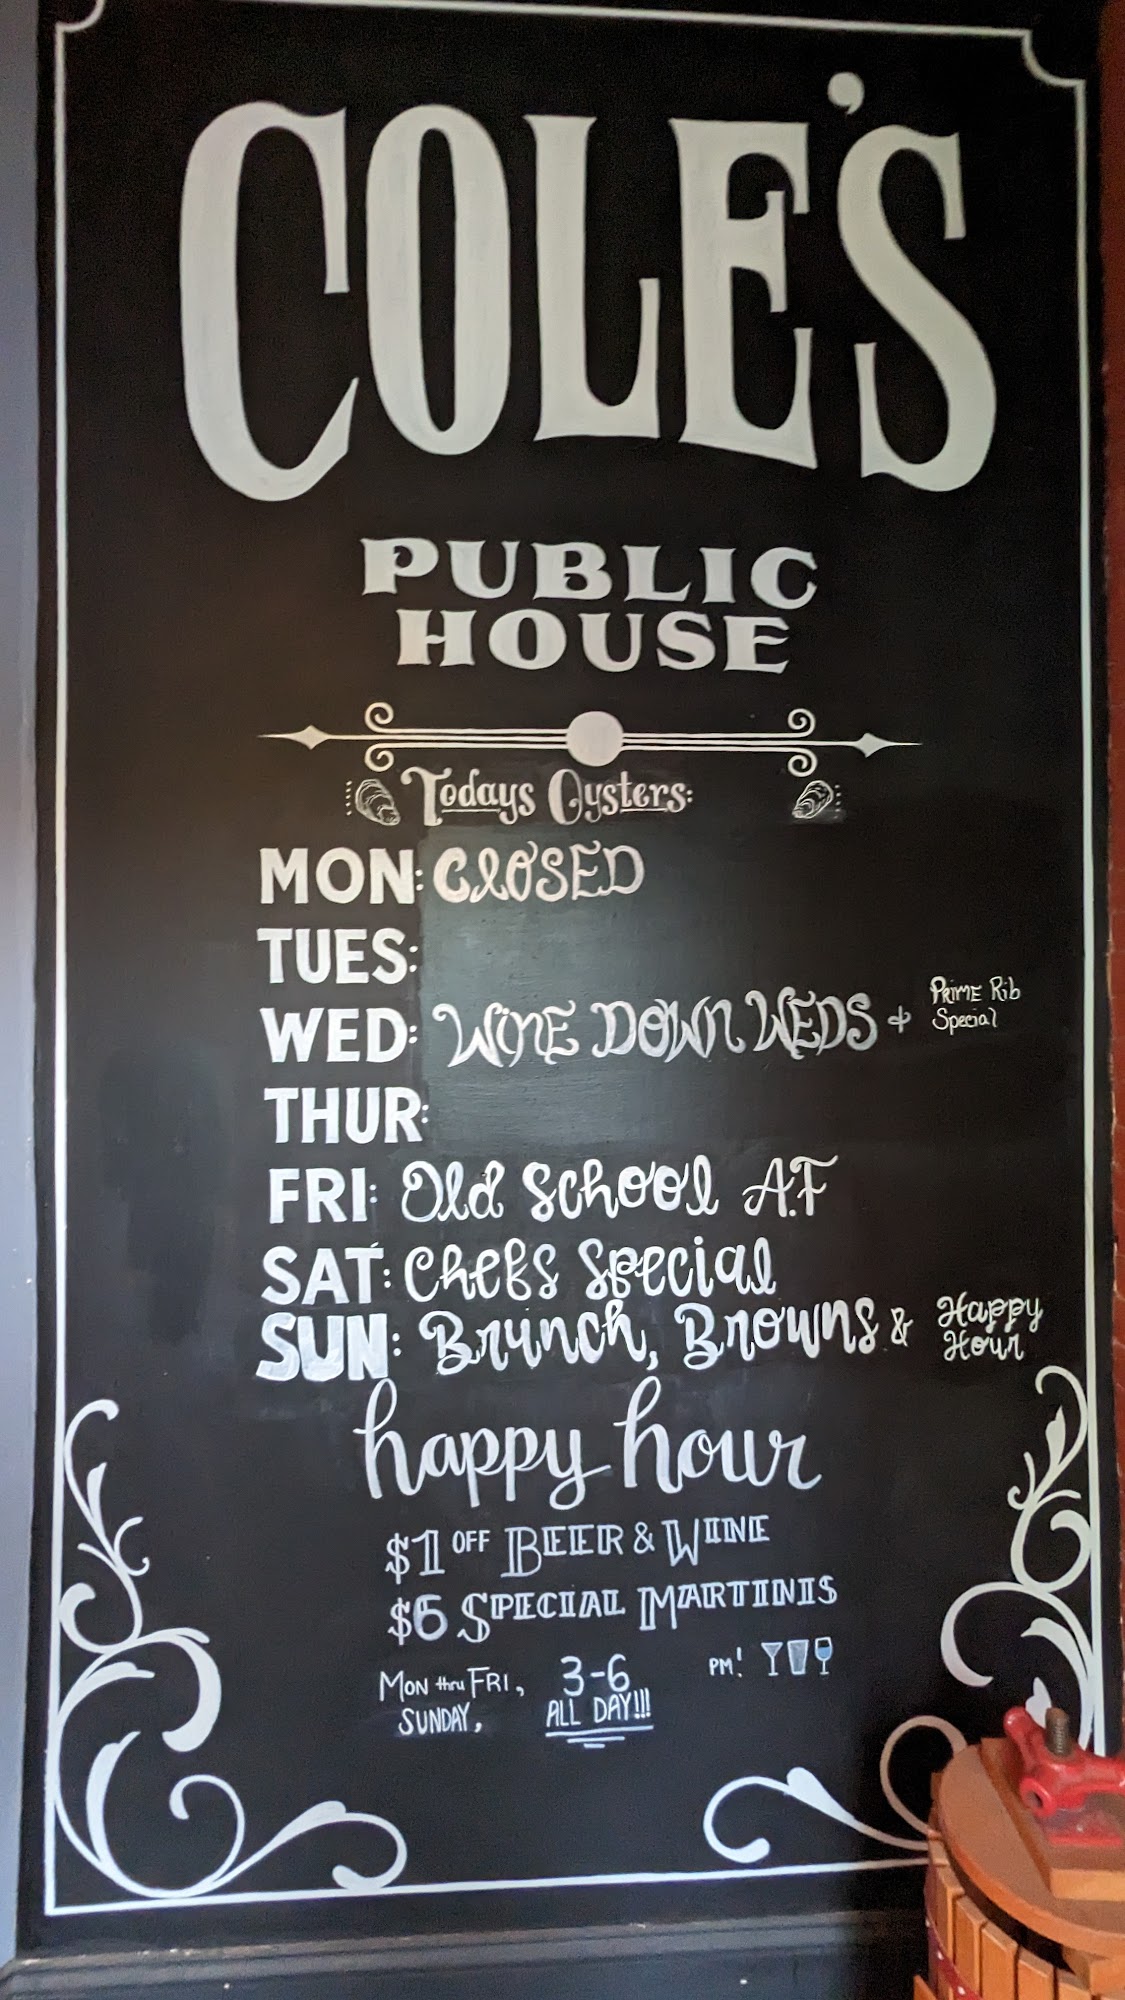 COLE'S
PUBLIC
HOUSE
Todays Oysters:
MON: CLOSED
TUES:
WED: WINE DOWN WEDS + PRIME Rib
Special
THUR:
FRI: Old School A.F
SAT: Chefs Special
SUN: Brunch, Browns & Happy
Hour
happy hour
$1 OFF BEER & WINE
$6 SPECIAL MARTINIS
MON thru FRI, 3-6 PM!
SUNDAY, ALL DAY!!!